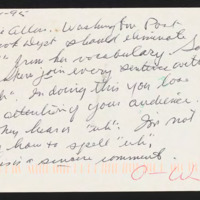 -95
Allen.. Washington Post
Dept should eliminate
" from her vocabulary. So
then join every sentence with
". In doing this you lose
attentioning your audience.
They hear is "uh". I'm not
how to spell "uh",
is a sincere comment.